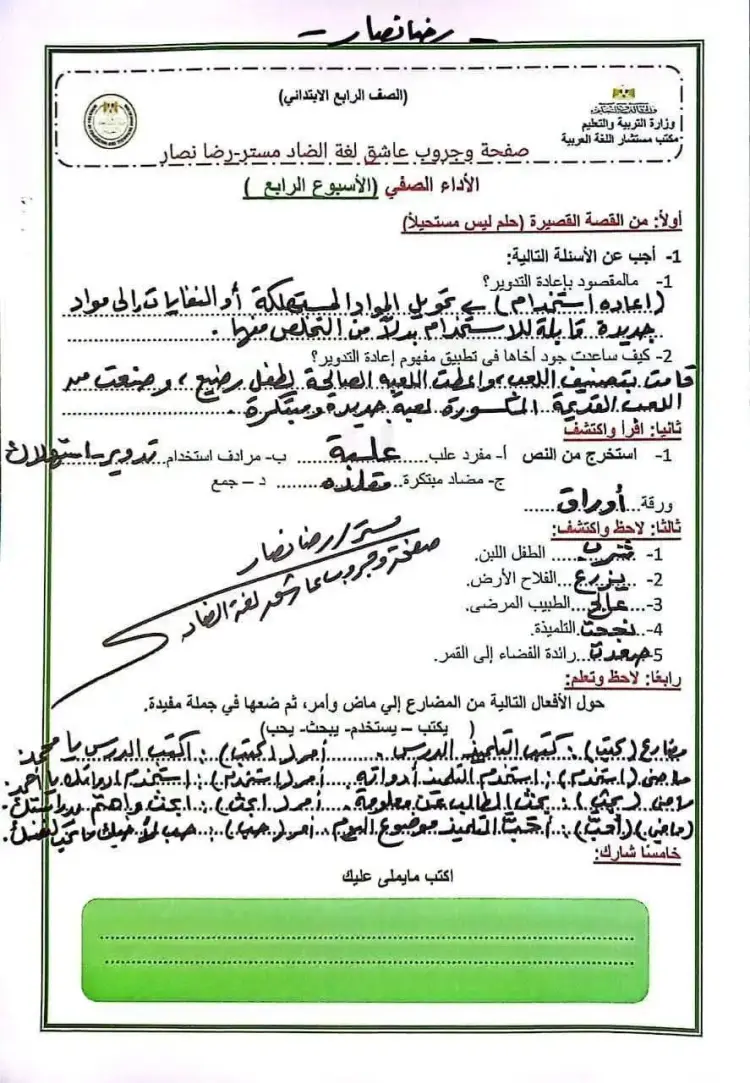 - رضا نصار -
(الصف الرابع الابتدائي)
وزارة التربية والتعليم
مكتب مستشار اللغة العربية
صفحة وجروب عاشق لغة الضاد مستر-رضا نصار
الأداء الصفي (الأسبوع الرابع )
أولاً: من القصة القصيرة (حلم ليس مستحيلاً)
1- أجب عن الأسئلة التالية:
1- مالمقصود بإعادة التدوير؟
(اعاده استخدام) هي تحويل المواد المستهلكة أو النفايات إلى مواد
جديدة قابلة للاستخدام بدلاً من التخلص منها.
2- كيف ساعدت جود أخاها في تطبيق مفهوم إعادة التدوير؟
قامت بتصنيف اللعب، واعطت اللعبه الصالحة لطفل رضيع، وصنعت من
اللعب القديمة المكسورة لعبة جديدة ومبتكرة.
ثانيا: اقرأ واكتشف
1- استخرج من النص أ- مفرد علب علبة ب- مرادف استخدام تدوير-استهلاك
ج- مضاد مبتكرة مقلده د – جمع
ورقة أوراق
ثالثا: لاحظ واكتشف:
1- شرب الطفل اللبن.
2- يزرع الفلاح الأرض.
3- عالج الطبيب المرضى.
4- نجحت التلميذة.
5- صعدت رائدة الفضاء إلى القمر.
مستر/رضا نصار
صفحة وجروب عاشق لغة الضاد
رابعًا: لاحظ وتعلم:
حول الأفعال التالية من المضارع إلي ماض وأمر، ثم ضعها في جملة مفيدة.
( يكتب – يستخدم- يبحث- يحب)
(كتب): كتب التلميذ الدرس. أمر (اكتب): اكتب الدرس يا محمد
ماضي (استخدم): استخدم التلميذ أدواته أمر (استخدم): استخدم ادواتك يا أحمد.
ماضي (بحث): بحث الطالب عن معلومة. أمر (ابحث): ابحث واهتم بدراستك.
(ماضي) (أحب): أحب التلميذ موضوع اليوم أمر (حب): حب لأخيك ما تحب لنفسك.
خامسا شارك:
اكتب مايملى عليك